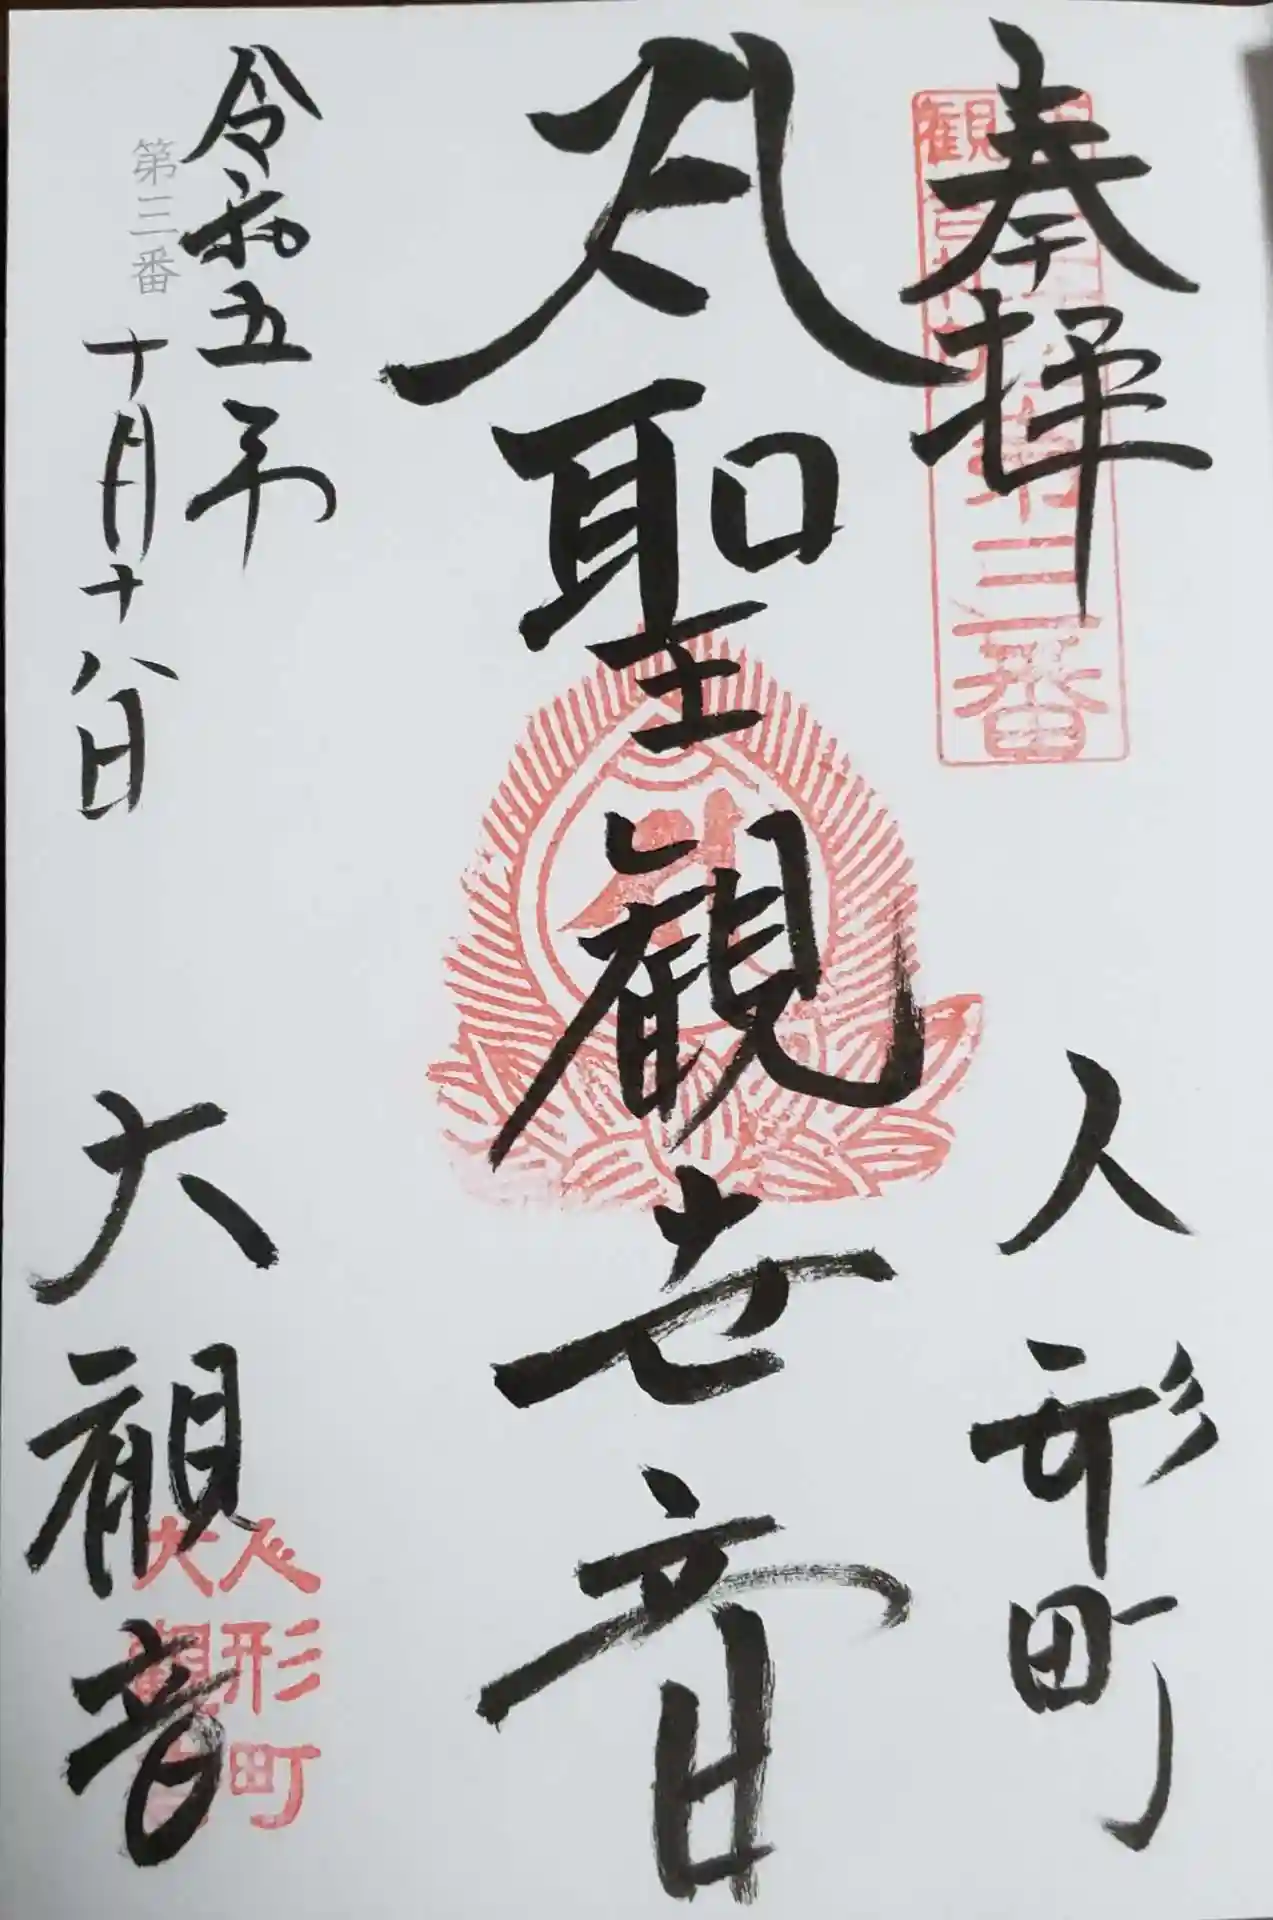 奉拝
人形町
第三番
聖観世音
令和五年
十月十八日
第三番
大観音
人形町
大観音